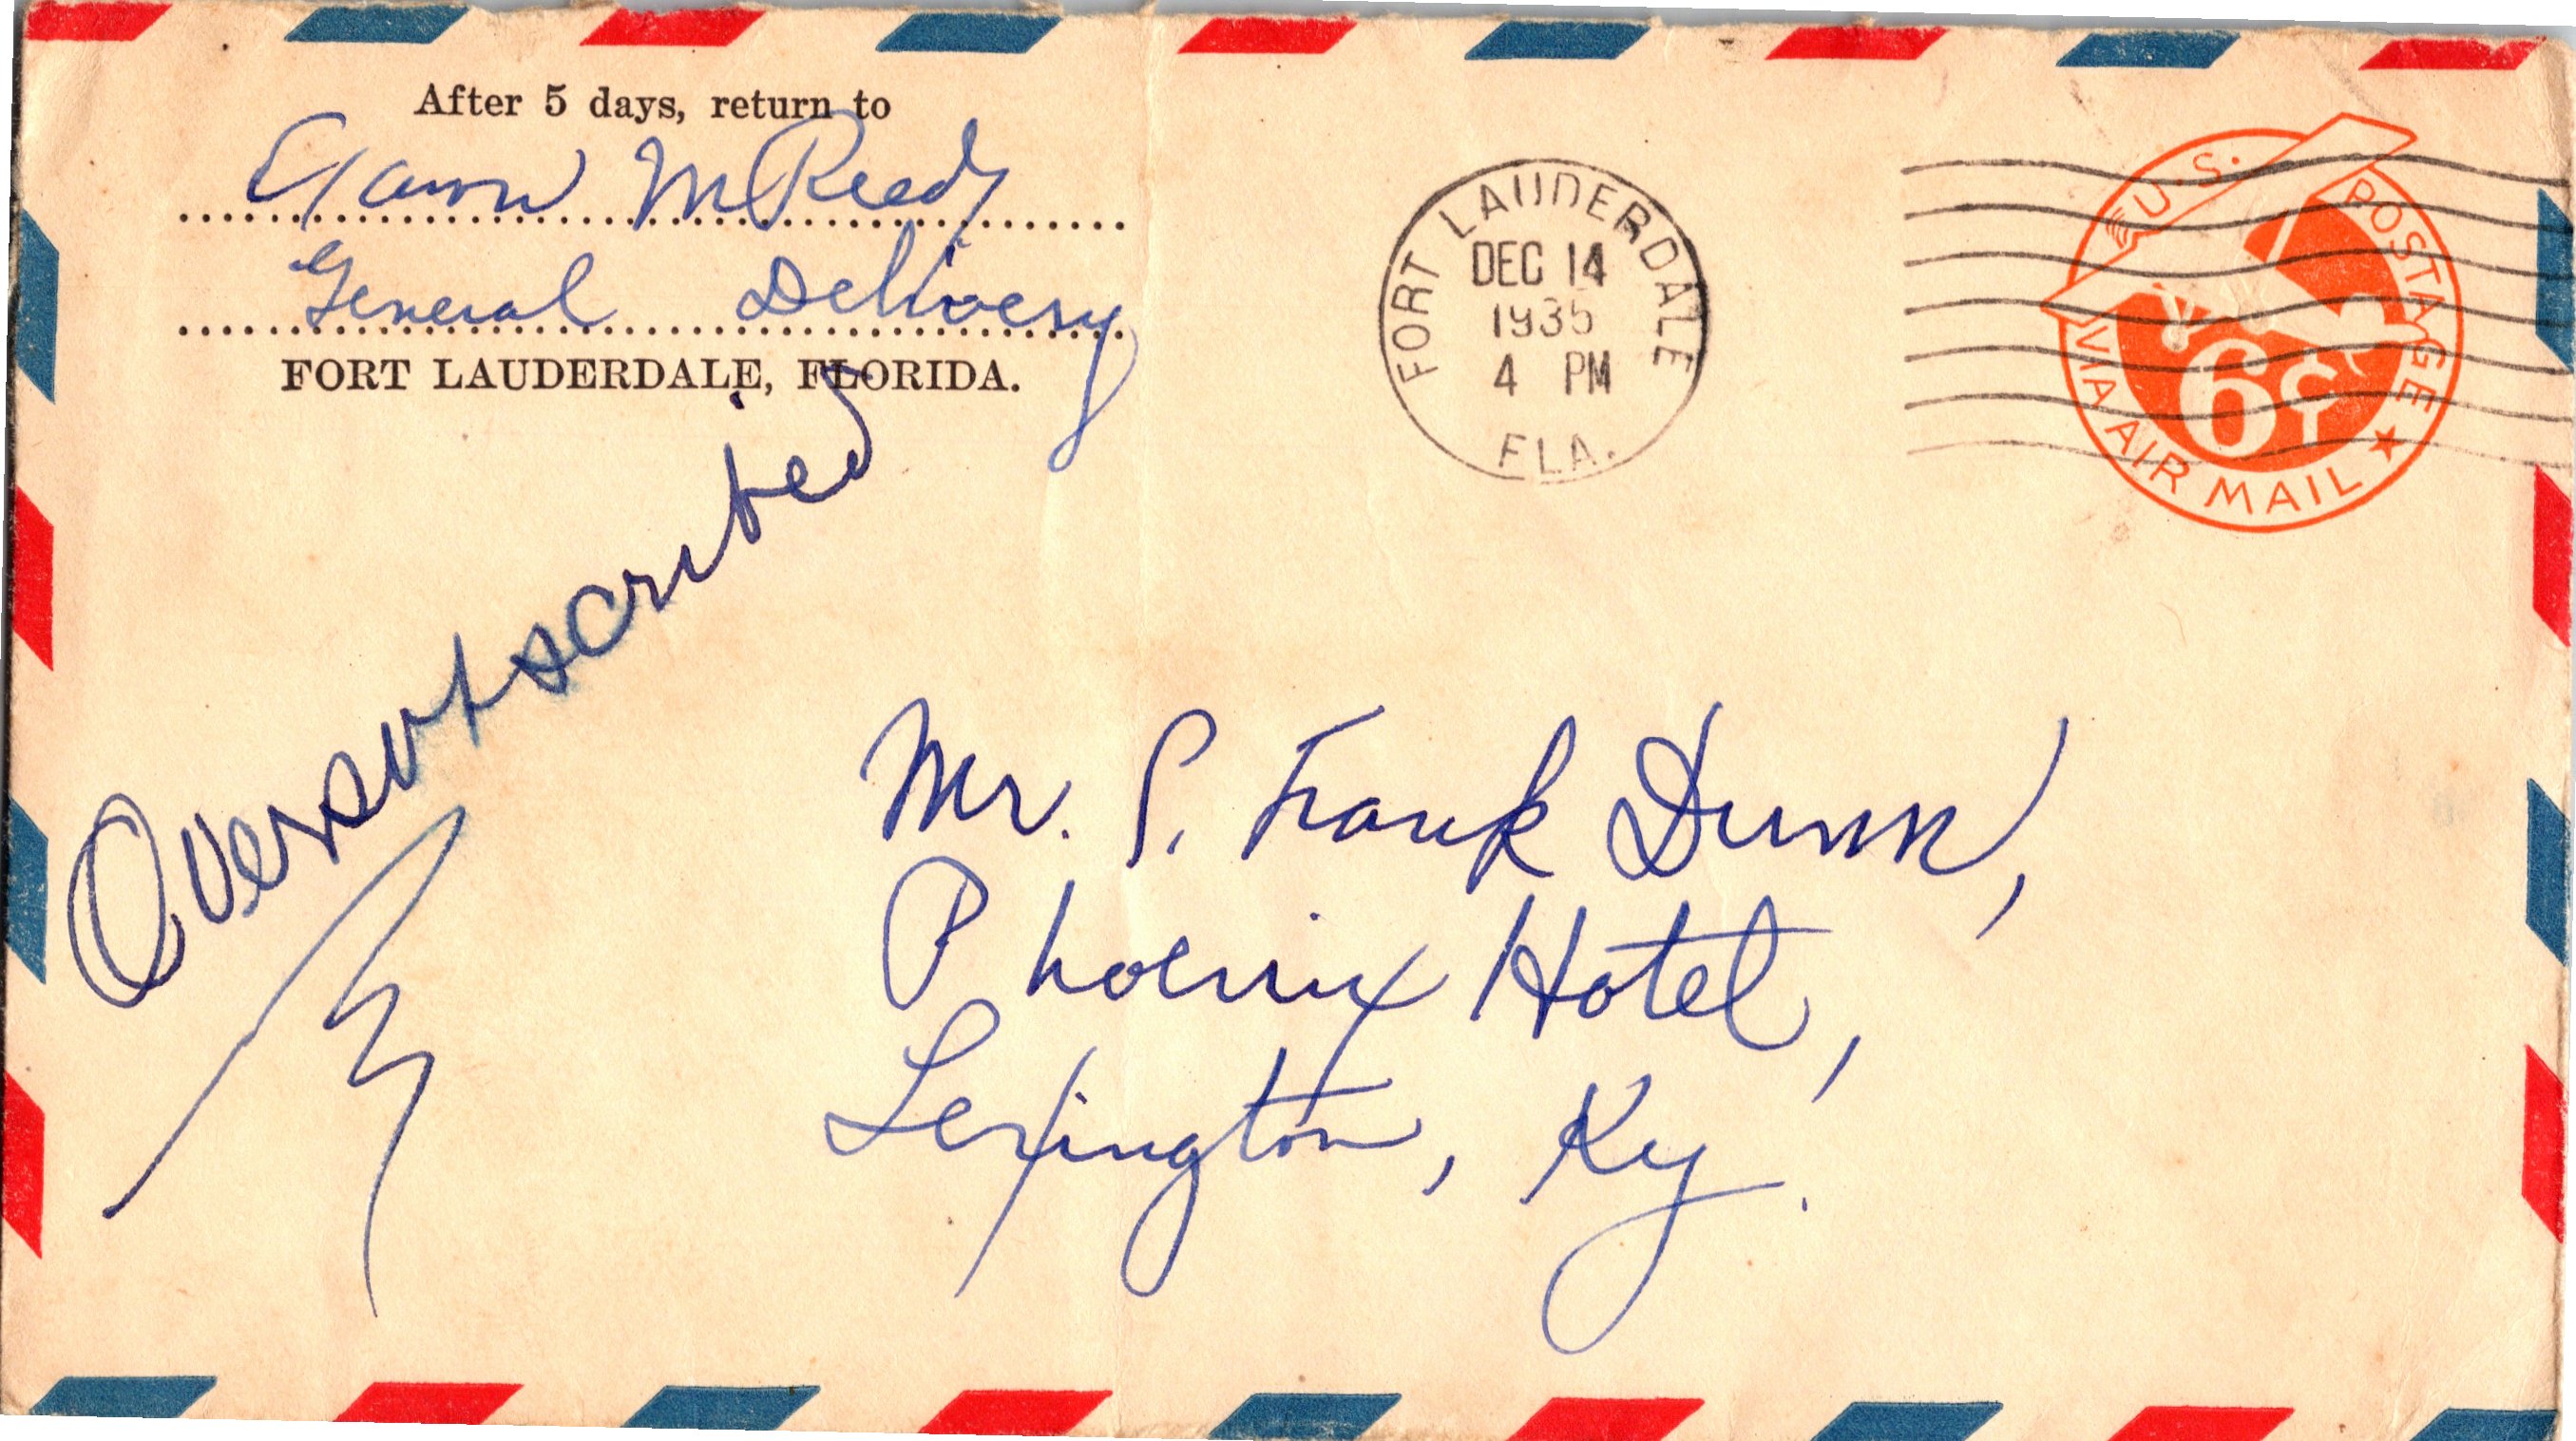 After 5 days, return to
M Reedy
General Delivery
FORT LAUDERDALE, FLORIDA.
FORT LAUDERDALE
DEC 14
1935
4 PM
FLA.
U.S. POSTAGE
6¢
VIA AIR MAIL
Mr. S. Frank Dunn,
Phoenix Hotel,
Lexington, Ky.